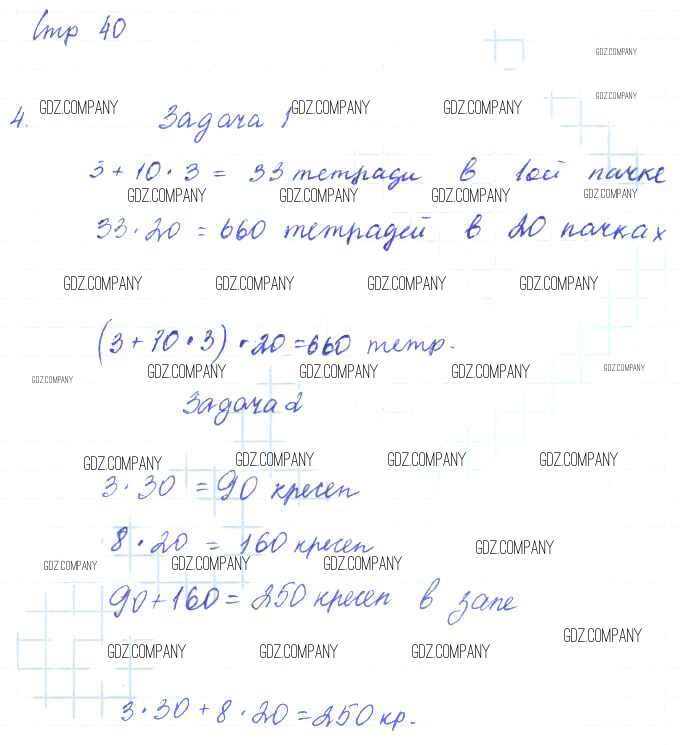 Стр 40
GDZ.COMPANY
GDZ.COMPANY
4. GDZ.COMPANY Задача 1 GDZ.COMPANY GDZ.COMPANY
3 + 10 · 3 = 33 тетради в 1ой пачке
GDZ.COMPANY GDZ.COMPANY GDZ.COMPANY GDZ.COMPANY
33 · 20 = 660 тетрадей в 20 пачках
GDZ.COMPANY GDZ.COMPANY GDZ.COMPANY GDZ.COMPANY
(3 + 10 · 3) · 20 = 660 тетр.
GDZ.COMPANY GDZ.COMPANY GDZ.COMPANY GDZ.COMPANY GDZ.COMPANY
Задача 2
GDZ.COMPANY GDZ.COMPANY GDZ.COMPANY GDZ.COMPANY
3 · 30 = 90 кресел
8 · 20 = 160 кресел GDZ.COMPANY
GDZ.COMPANY GDZ.COMPANY GDZ.COMPANY
90 + 160 = 250 кресел в зале
GDZ.COMPANY
GDZ.COMPANY GDZ.COMPANY GDZ.COMPANY
3 · 30 + 8 · 20 = 250 кр.